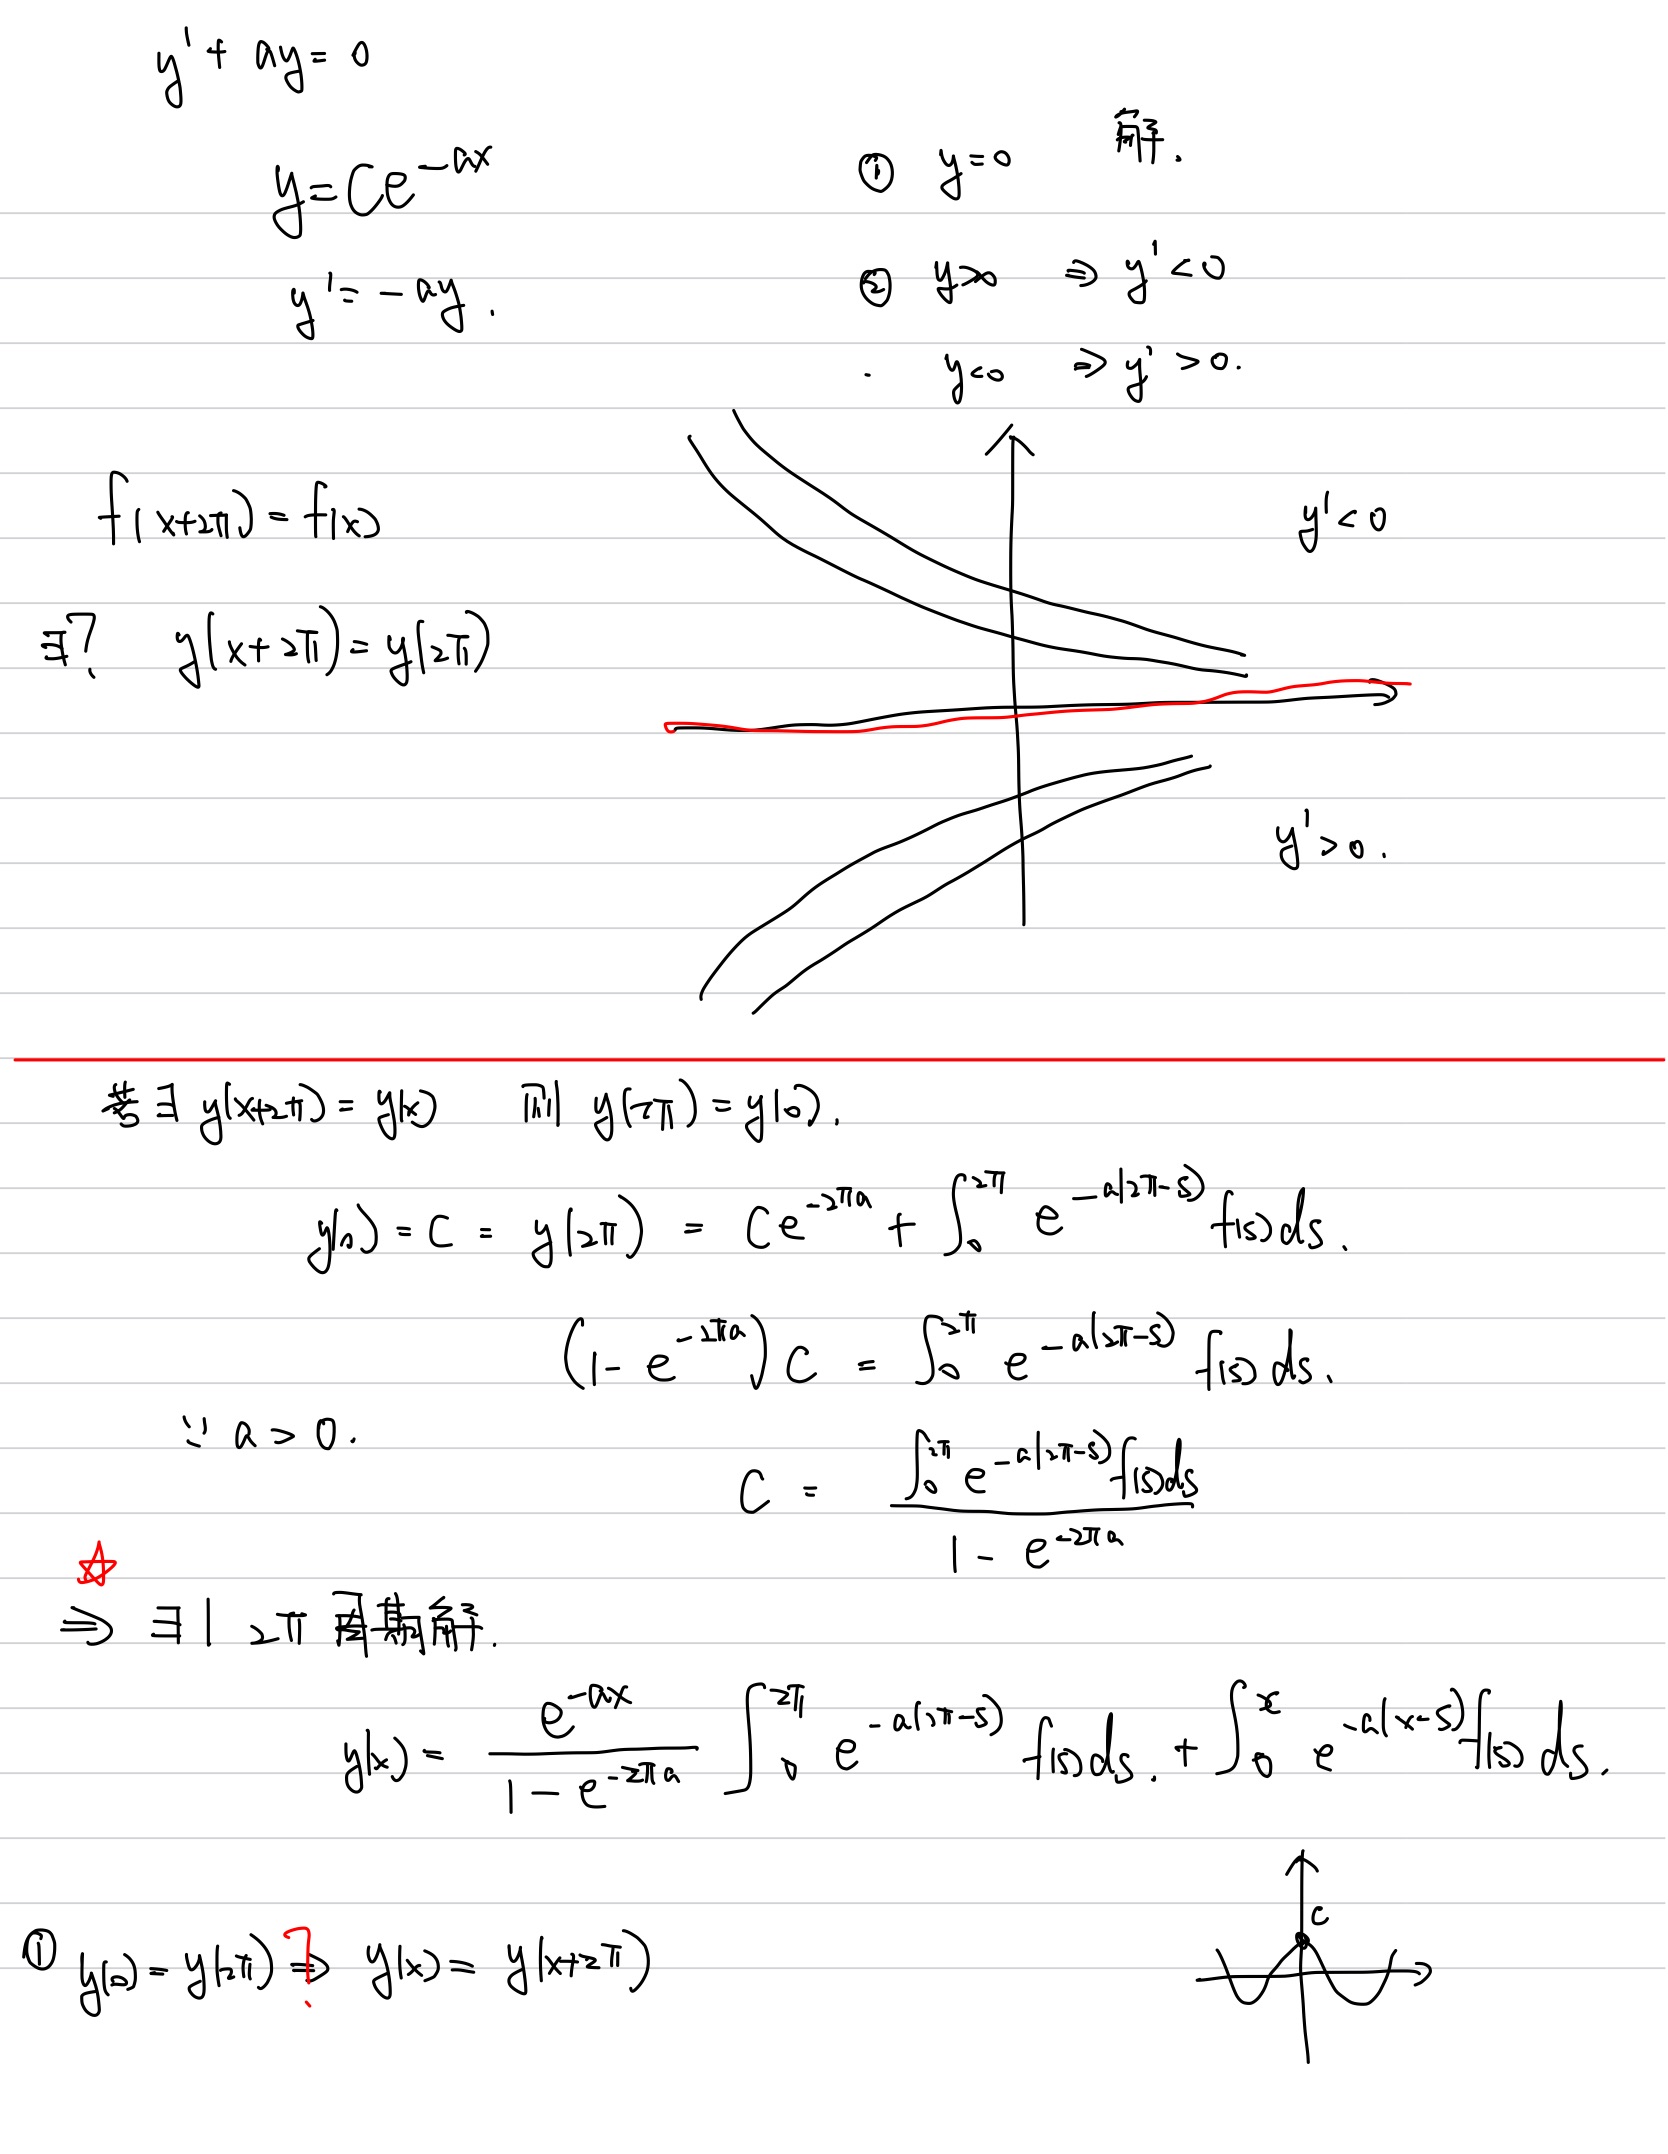 y' + ay = 0
y = Ce^{-ax}
y' = -ay.
① y=0 解.
② y>0 ⇒ y'<0
y<0 ⇒ y'>0.
f(x+2π) = f(x)
∃? y(x+2π) = y(2π)
y'<0
y'>0.
若 ∃ y(x+2π) = y(x) 则 y(2π) = y(0).
y(0) = C = y(2π) = Ce^{-2πa} + ∫_0^{2π} e^{-a(2π-s)} f(s)ds.
(1-e^{-2πa}) C = ∫_0^{2π} e^{-a(2π-s)} f(s)ds.
∵ a > 0.
C = \frac{∫_0^{2π} e^{-a(2π-s)} f(s)ds}{1 - e^{-2πa}}
☆
⇒ ∃| 2π 周期解.
y(x) = \frac{e^{-ax}}{1-e^{-2πa}} ∫_0^{2π} e^{-a(2π-s)} f(s)ds. + ∫_0^x e^{-a(x-s)} f(s)ds.
c
① y(0) = y(2π) ⇒ ? y(x) = y(x+2π)